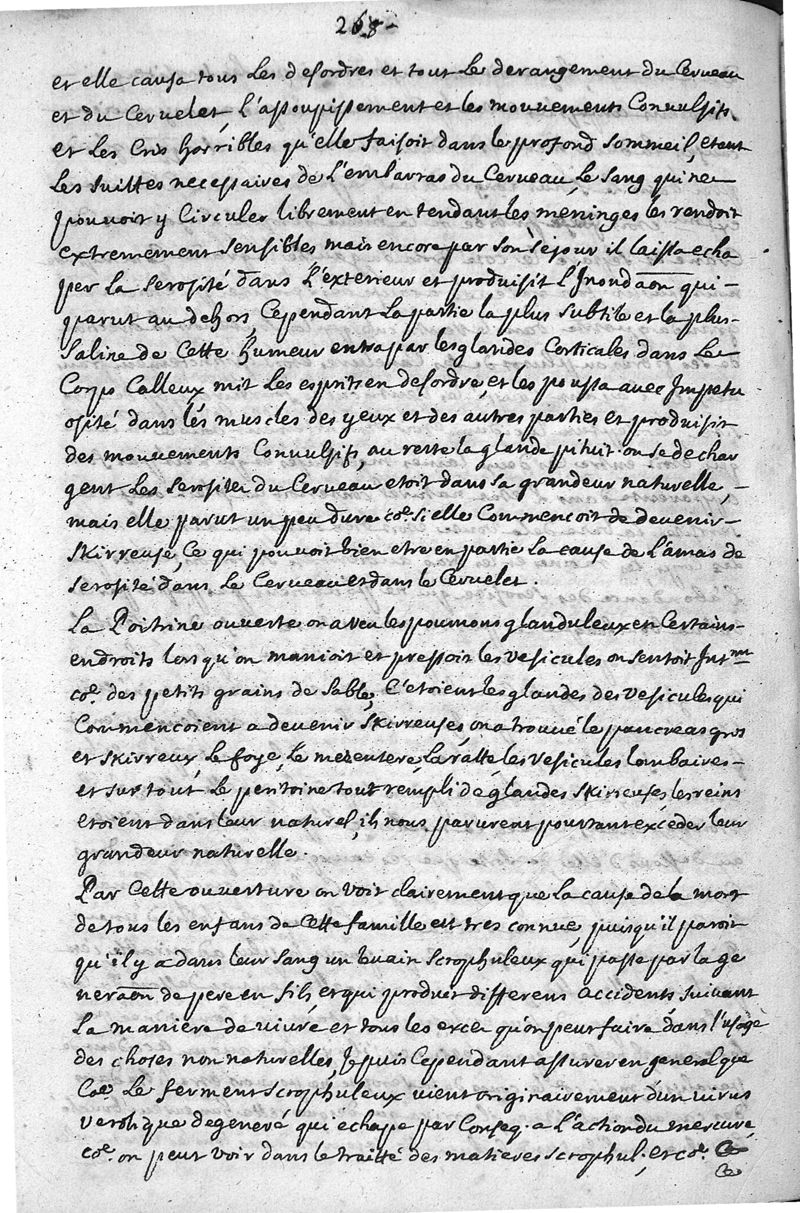 268 -
et elle causa tous les desordres et tout le derangement du Cerveau
et du Cervelet, L'assoupissement et les mouvements Convulsifs
et Les Cris horribles qu'elle faisoit dans le profond sommeil, etant
Les suittes necessaires de L'embarras du Cerveau, Le sang qui ne
pouvoit y Circuler librement en tendant les meninges les rendoit
extremement sensibles mais encore par son sejour il laissa echa
per la serosité dans L'exterieur et produisit L'Inondaon qui -
parut au dehors, Cependant La partie la plus subtile et la plus -
Saline de Cette humeur entra par les glandes Corticales dans Le
Corps Calleux mit Les esprits en desordre, et les poussa avec Impetu
osité dans les muscles des yeux et des autres parties et produisit
des mouvements Convulsifs, au reste la glande pituit. ou se dechar
gent Les serositez du Cerveau etoit dans sa grandeur naturelle, -
mais elle parut un peu dure coe. si elle Commencoit de devenir -
skirreuse, Ce qui pouvoit bien etre en partie La cause de L'amas de
serosité dans Le Cerveau et dans le Cervelet.
La Poitrine ouverte on a veu les poumons glanduleux en Certains -
endroits lorsqu'on manioit et pressoit les vesicules on sentoit
coe. des petits grains de sable, C'etoient les glandes des vesicules qui
Commencoient a devenir skirreuses, on a trouvé le pancreas gros
et skirreux, Le foye, Le mesentere, La ratte, les vesicules lombaires -
et sur tout Le peritoine tout rempli de glandes skirreuses, les reins
etoient dans leur naturel, ils nous parurent pourtant exceder leur
grandeur naturelle.
Par Cette ouverture on voit clairement que La cause de la mort
de tous les enfans de Cette famille est tres connue, puisqu'il paroit
qu'il y a dans leur sang un levain scrophuleux qui passe par la ge
neraon de pere en fils, et qui produit differens accidents suivant
La maniere de vivre et tous les excez qu'on peut faire dans l'usage
des choses non naturelles, Je puis Cependant assurer en general que
Coe. Le ferment scrophuleux vient originairement d'un virus
verolique degeneré qui echape par Conseq. a L'action du mercure,
coe. on peut voir dans le traitté des matieres scrophul. et coe.